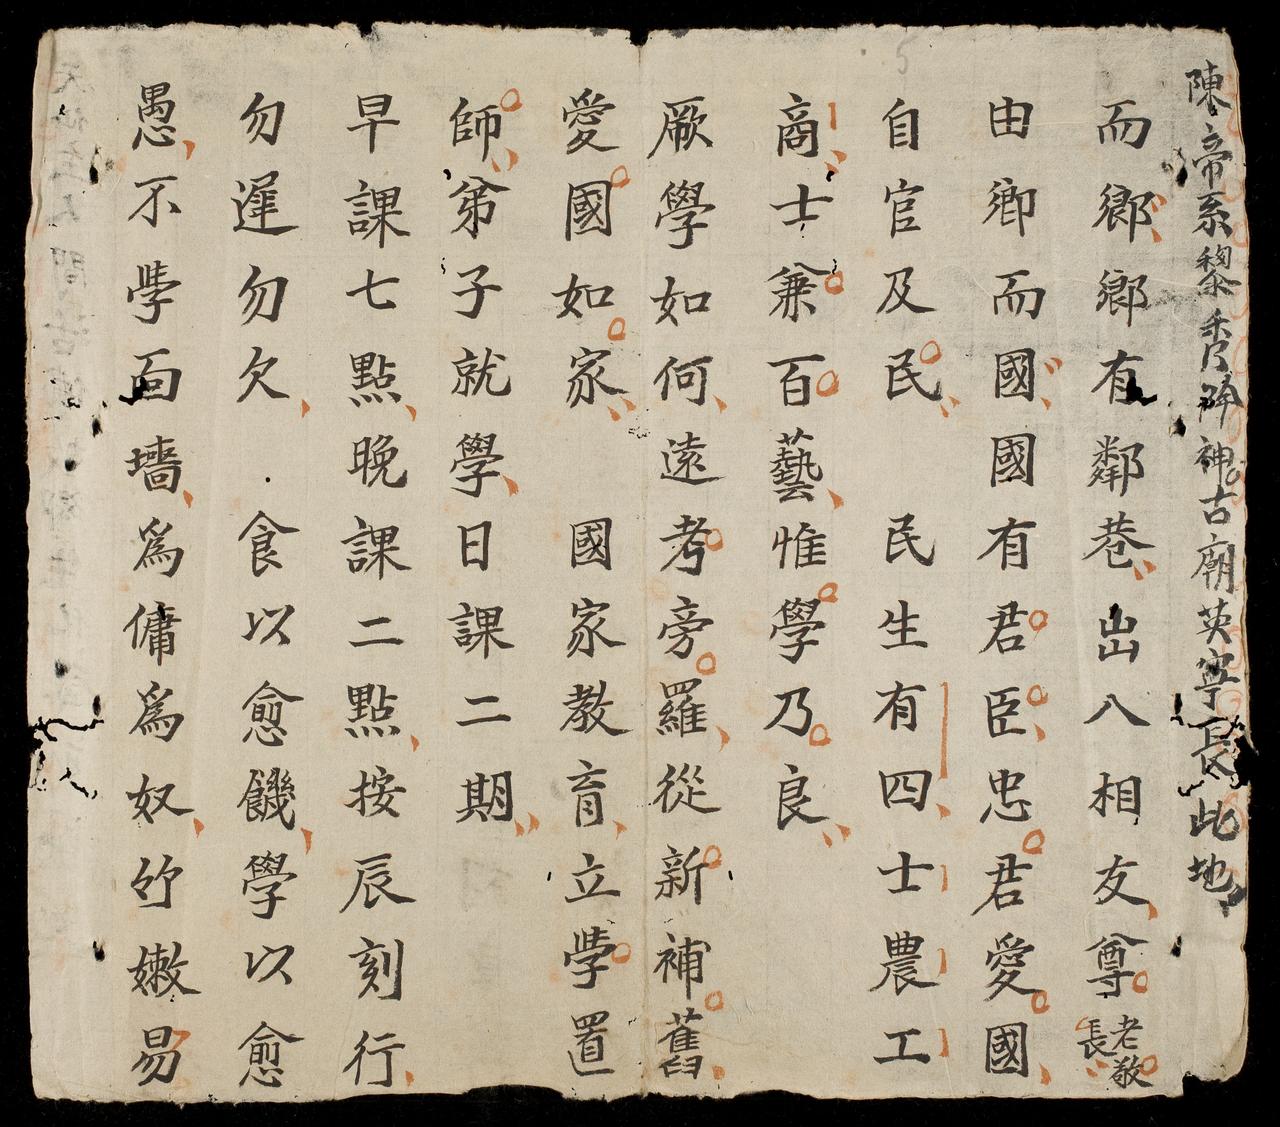 陳帝系黎秀將神古廟英寧長此地
而鄉鄉有鄰巷出八相友尊老敬長
由鄉而國國有君臣忠君愛國
自官及民　民生有四士農工
商士兼百藝惟學乃良
厥學如何遠考旁羅從新補舊
愛國如家　國家教育立學置
師第子就學日課二期
早課七點晚課二點按辰刻行
勿遲勿欠　食以愈饑學以愈
愚不學面墻爲傭爲奴竹嫩易